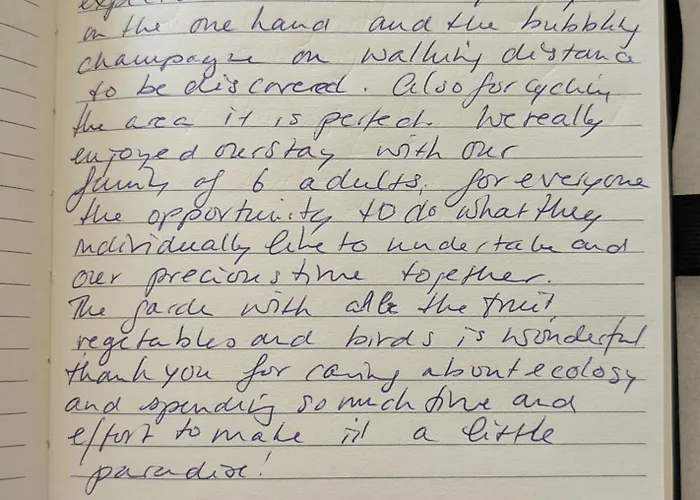 on the one hand and the bubbly
champagne on walking distance
to be discovered. Also for cycling
the area it is perfect. We really
enjoyed our stay with our
family of 6 adults, for everyone
the opportunity to do what they
individually like to undertake and
our precious time together.
The garde with all the fruit
vegetables and birds is wonderful
thank you for caring about ecology
and spending so much time and
effort to make it a little
paradise!